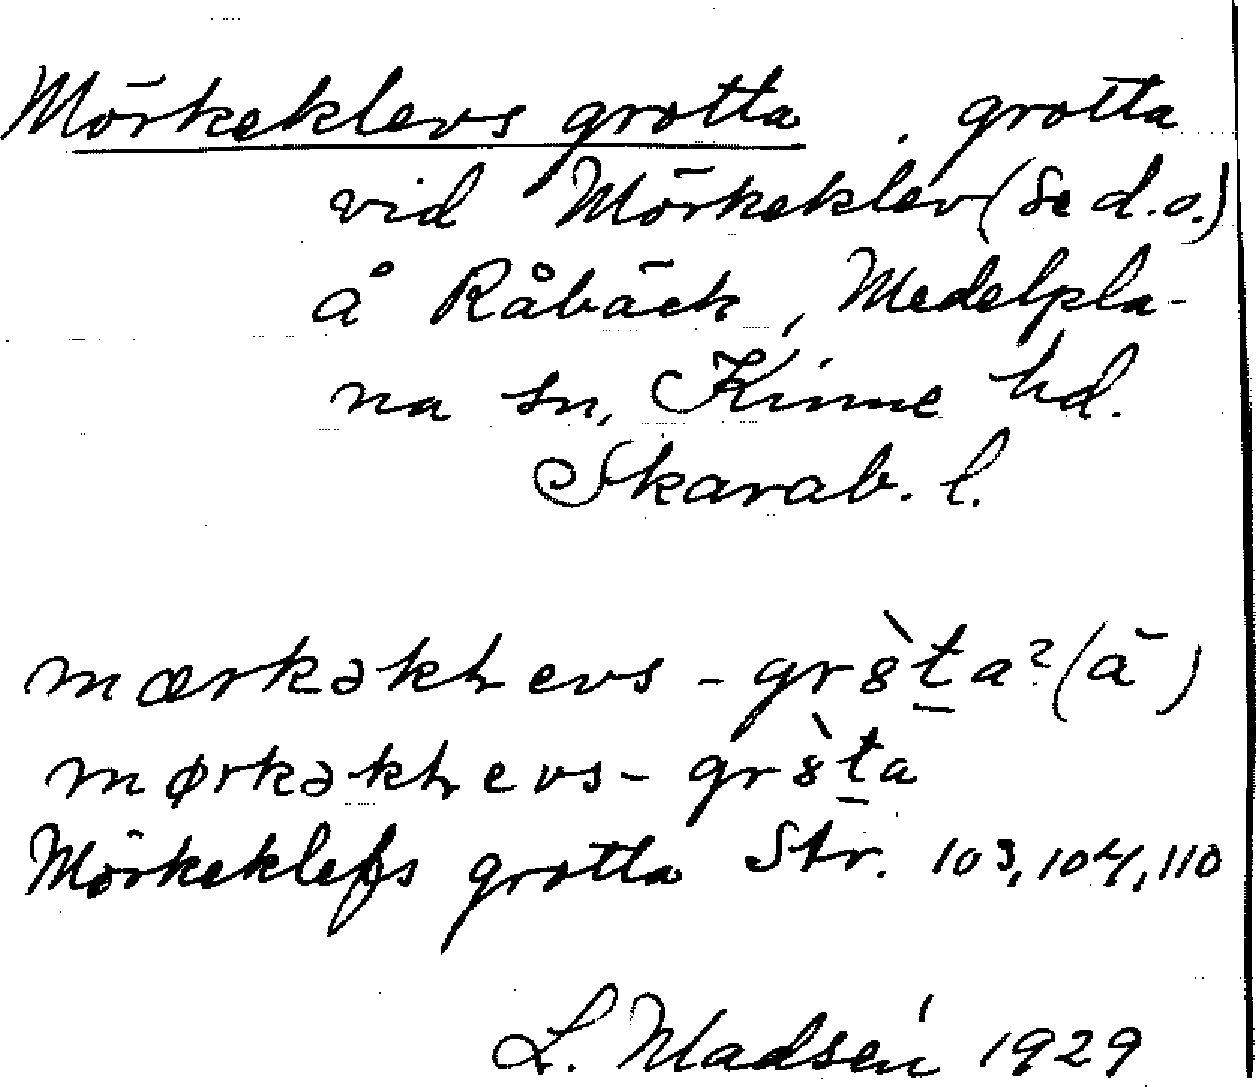 Mörkeklevs grotta, grotta
vid Mörkeklev (se d.o.)
å Råbäck, Medelpla-
na sn, Kinne hd.
Skarab. l.
mœrkəkꞎevs - gr8̀ṯa? (ā)
mørkəkꞎevs - gr8̀ṯa
Mörkeklefs grotta Str. 103, 104, 110
L. Madsén 1929